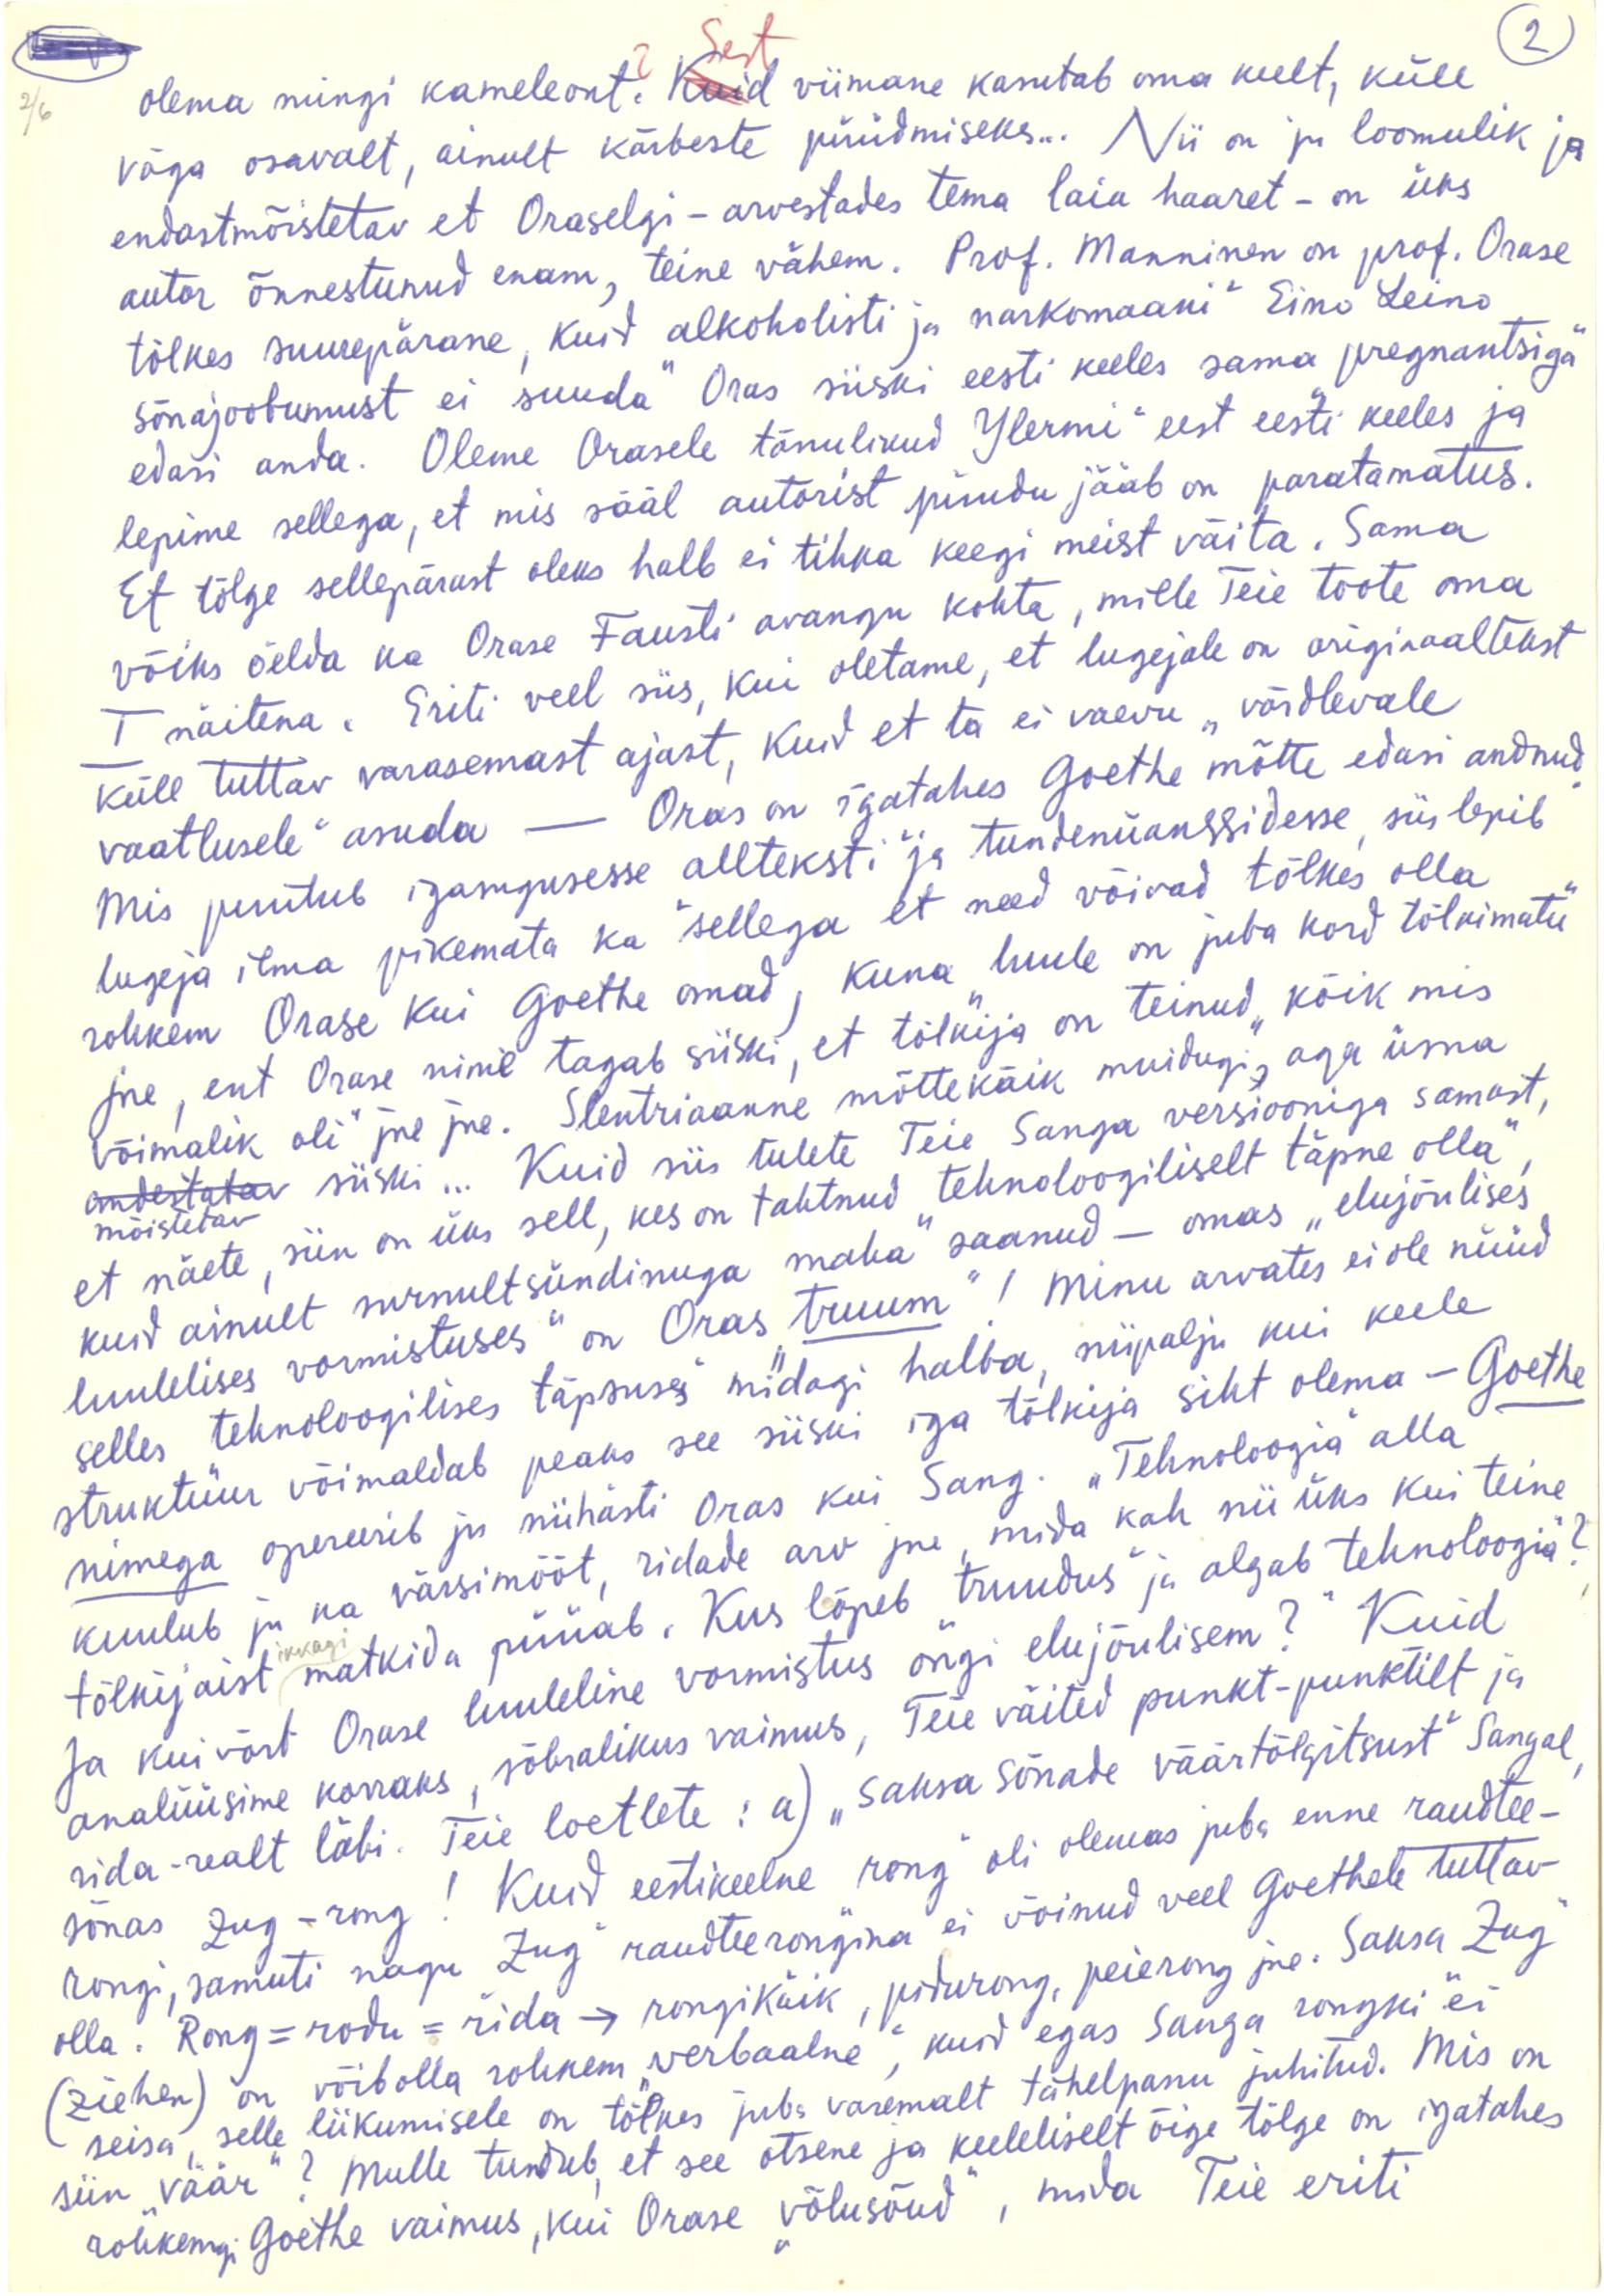 2
2/6
olema mingi kameleont? Sest viimane kasutab oma keelt, küll
väga osavalt, ainult kärbeste püüdmiseks... Nii on ju loomulik ja
endastmõistetav et Oraselgi – arvestades tema laia haaret – on üks
autor õnnestunud enam, teine vähem. Prof. Manninen on prof. Orase
tõlkes suurepärane, kuid alkoholisti ja narkomaani" Eino Leino
sõnajoobumust ei suuda" Oras siiski eesti keeles sama pregnantsiga"
edasi anda. Oleme Orasele tänulikud „Ylermi" eest eesti keeles ja
lepime sellega, et mis sääl autorist puudu jääb on paratamatus.
Et tõlge sellepärast oleks halb ei tihka keegi meist väita. Sama
võiks öelda ka Orase Fausti avangu kohta, mille Teie toote oma
I näitena. Eriti veel siis, kui oletame, et lugejale on originaaltekst
küll tuttav varasemast ajast, kuid et ta ei vaevu „võrdlevale
vaatlusele" asuda — Oras on igatahes Goethe mõtte edasi andnud
Mis puutub igasugusesse allteksti" ja tundenüanssidesse, siis lepib
lugeja ilma pikemata ka sellega et need võivad tõlkes olla
rohkem Orase kui Goethe omad, kuna „luule on juba kord tõlkimatu"
jne, ent Orase nimi tagab siiski, et tõlkija on teinud „kõik mis
võimalik oli" jne jne. Slentriaanne mõttekäik muidugi, aga üsna
andestatav siiski... Kuid siis tulete Teie Sanga versiooniga samast,
mõistetav
et näete, siin on üks sell, kes on tahtnud „tehnoloogiliselt täpne olla",
kuid ainult surnultsündinuga maha" saanud – omas „elujõulises
luulelises vormistuses" on Oras „truum"! Minu arvates ei ole nüüd
selles tehnoloogilises täpsuses" midagi halba, niipalju kui keele
struktuur võimaldab peaks see siiski iga tõlkija siht olema – Goethe
nimega opereerib ju niihästi Oras kui Sang. „Tehnoloogia" alla
kuulub ju ka värsimõõt, ridade arv jne, mida kah nii üks kui teine
tõlkijaist ikkagi matkida püüab. Kus lõpeb „truudus" ja algab tehnoloogia"?
Ja kuivõrt Orase luuleline vormistus ongi elujõulisem?" Kuid
analüüsime korraks, sõbralikus vaimus, Teie väited punkt-punktilt ja
rida-realt läbi. Teie loetlete: a) „saksa sõnade väärtõlgitsust" Sangal,
sõnas Zug – rong! Kuid eestikeelne rong" oli olemas juba enne raudtee-
rongi, samuti nagu Zug" raudteerongina ei võinud veel Goethele tuttav
olla. Rong = rodu = rida → rongikäik, pidurong, peierong jne. Saksa Zug"
(ziehen) on võibolla rohkem „verbaalne", kuid egas Sanga rongki ei
seisa, selle liikumisele on tõlkes juba varemalt tähelpanu juhitud. Mis on
siin „väär"? Mulle tundub, et see otsene ja keeleliselt õige tõlge on igatahes
rohkemgi Goethe vaimus, kui Orase „võlusõud", mida Teie eriti